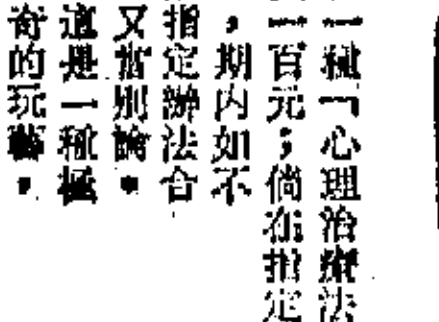 一種「心理治療法
一百元；倘在指定
，期内如不
指定辦法合
又當別論。
這是一種極
奇的玩藝。